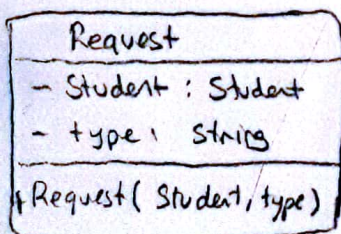 Request
- Student : Student
- type : String
+ Request( Student, type)